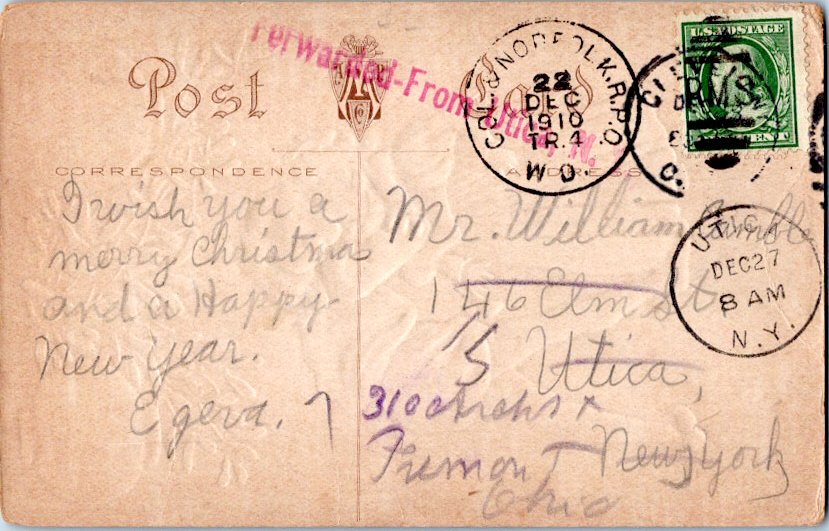 Post Card
Forwarded-From Utica, N.
COL. & NORFOLK. R.P.O.
22
DEC
1910
TR. 4
W D
R.M.S.
U.S. POSTAGE
CORRESPONDENCE
ADDRESS
I wish you a
merry Christmas
and a Happy
New Year.
Mr. William
146 Elm st,
Utica,
New York
310
Fremont
Ohio
UTICA
DEC 27
8 AM
N.Y.